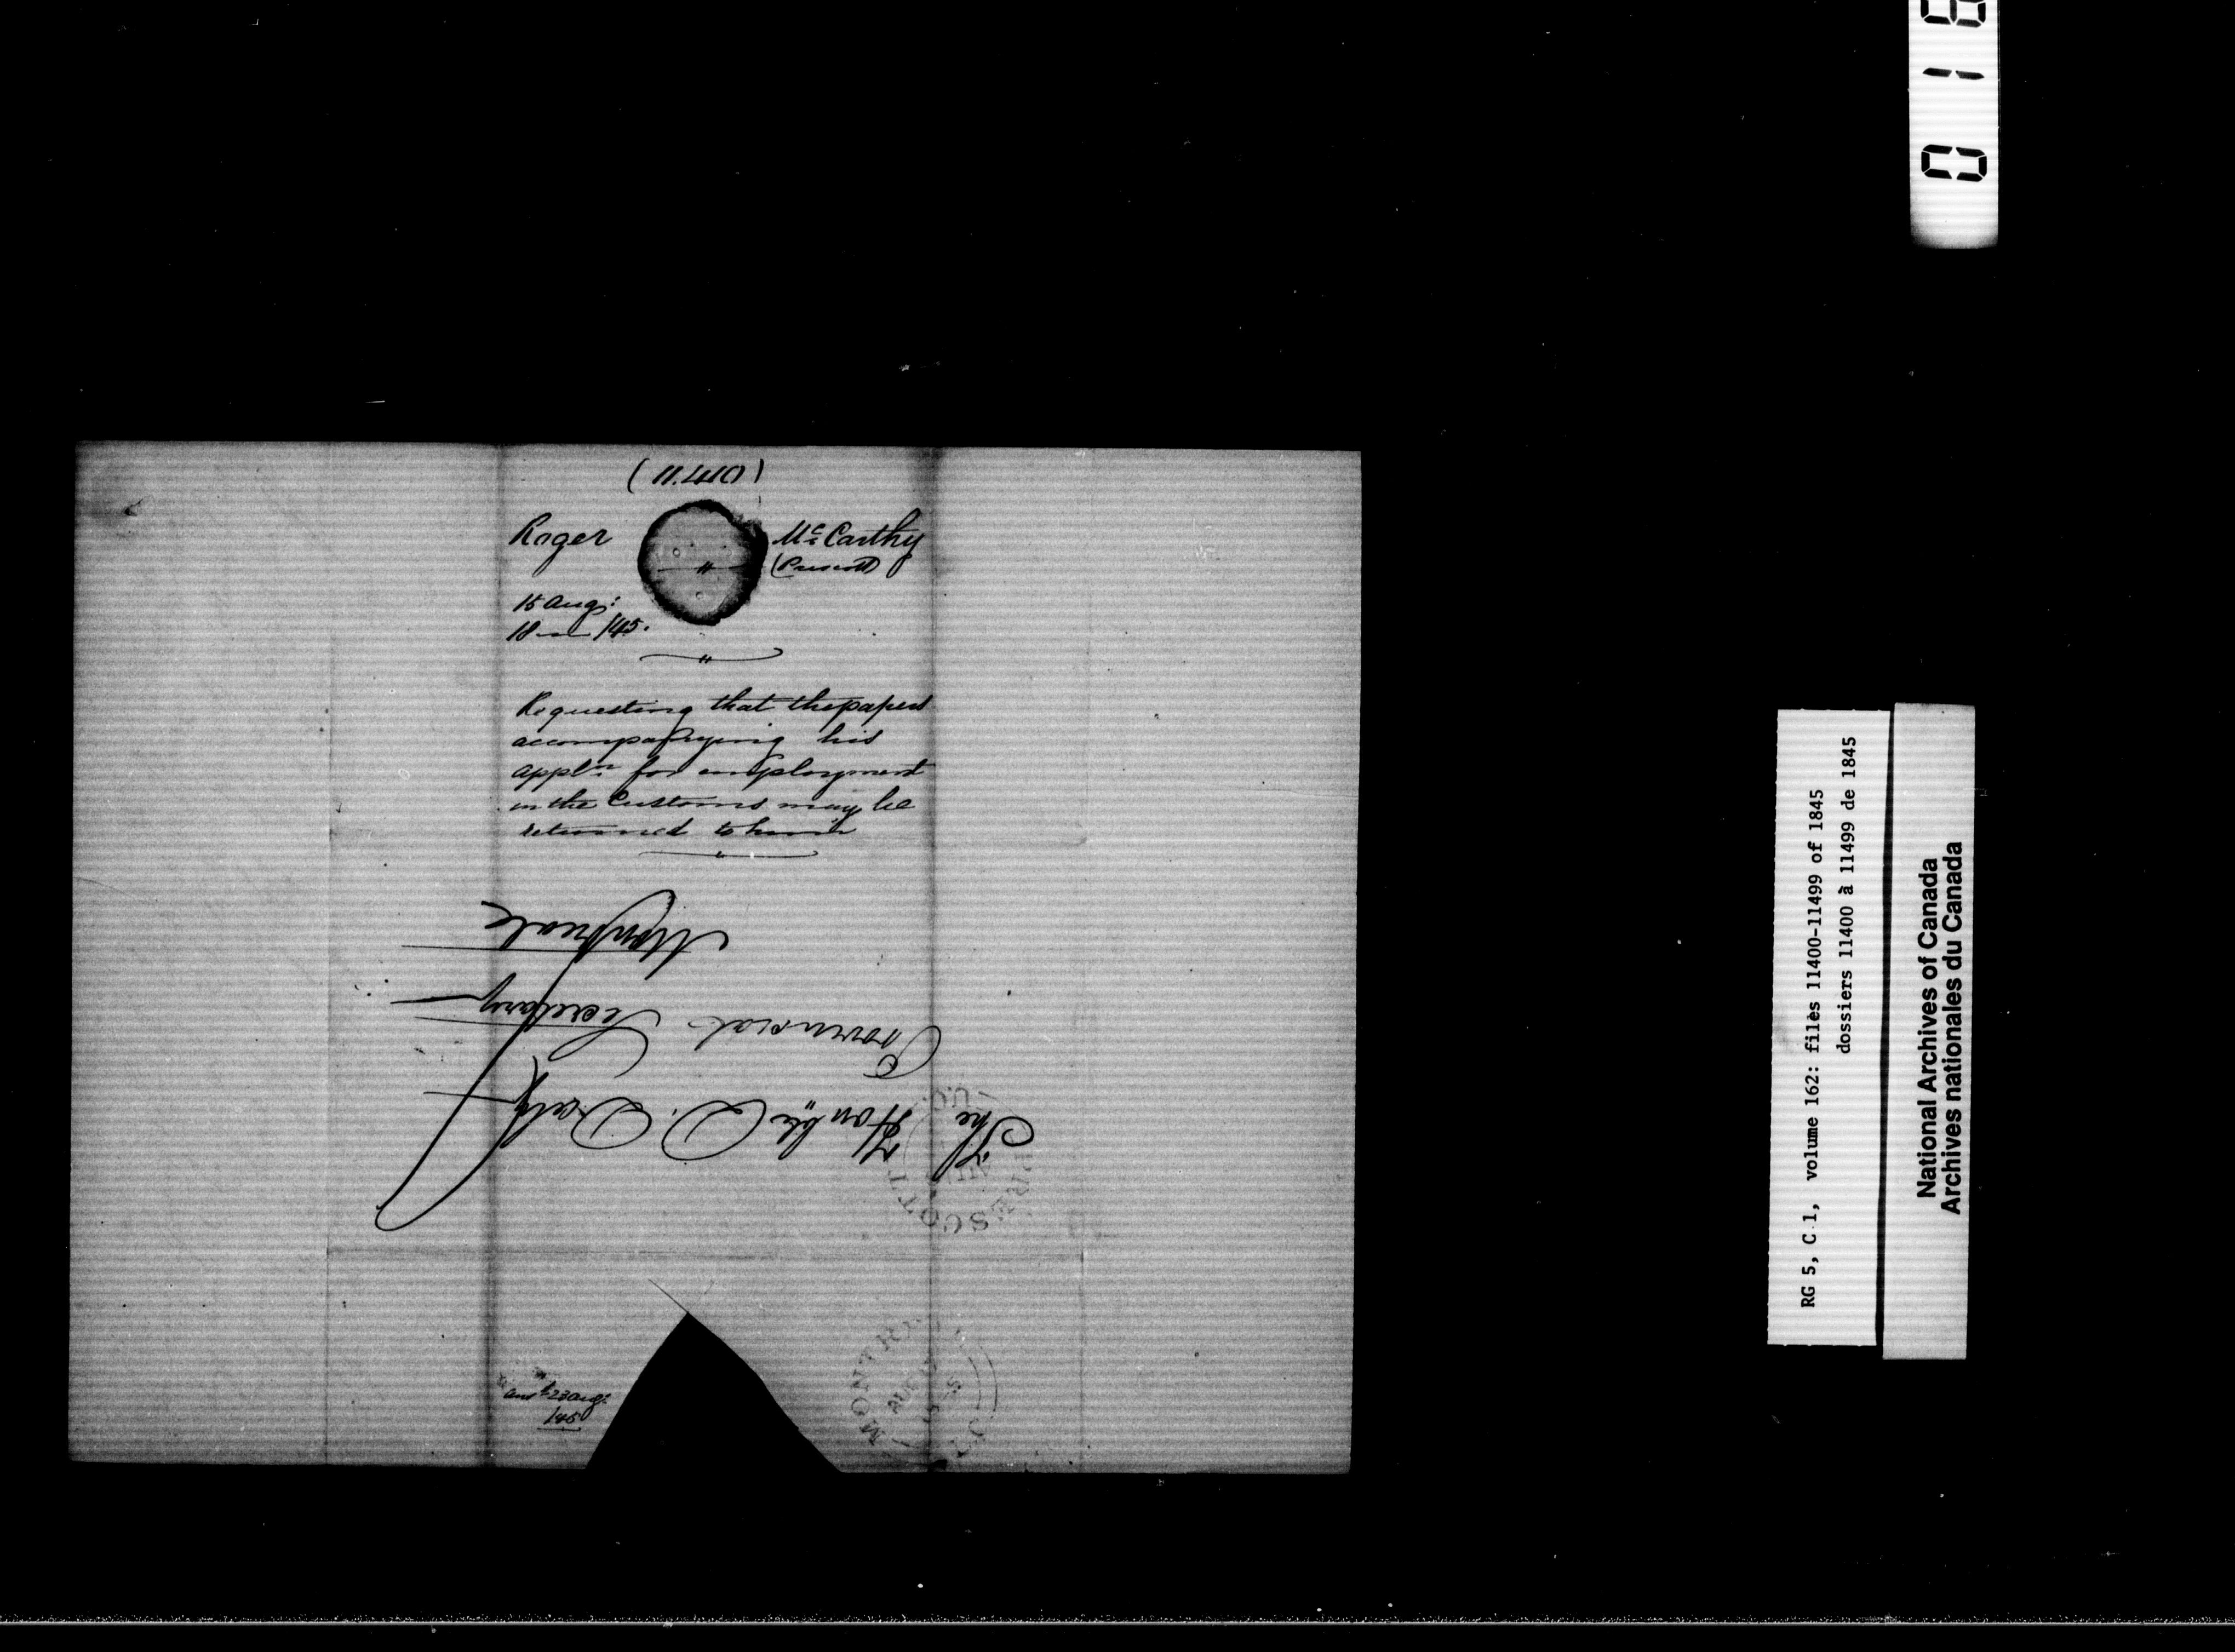 (11.440)
Roger McCarthy
(Prescott)
15 Aug:
18 — /45.
Requesting that the papers
accompanying his
appln for employment
in the Customs may be
returned to him
The Honble D. Daly
Provincial Secretary
Montreal
PRESCOTT
U.C.
MONTR
AUG
ansd 23 Aug:
/45
RG 5, C 1, volume 162: files 11400-11499 of 1845
dossiers 11400 à 11499 de 1845
National Archives of Canada
Archives nationales du Canada
0 1 8